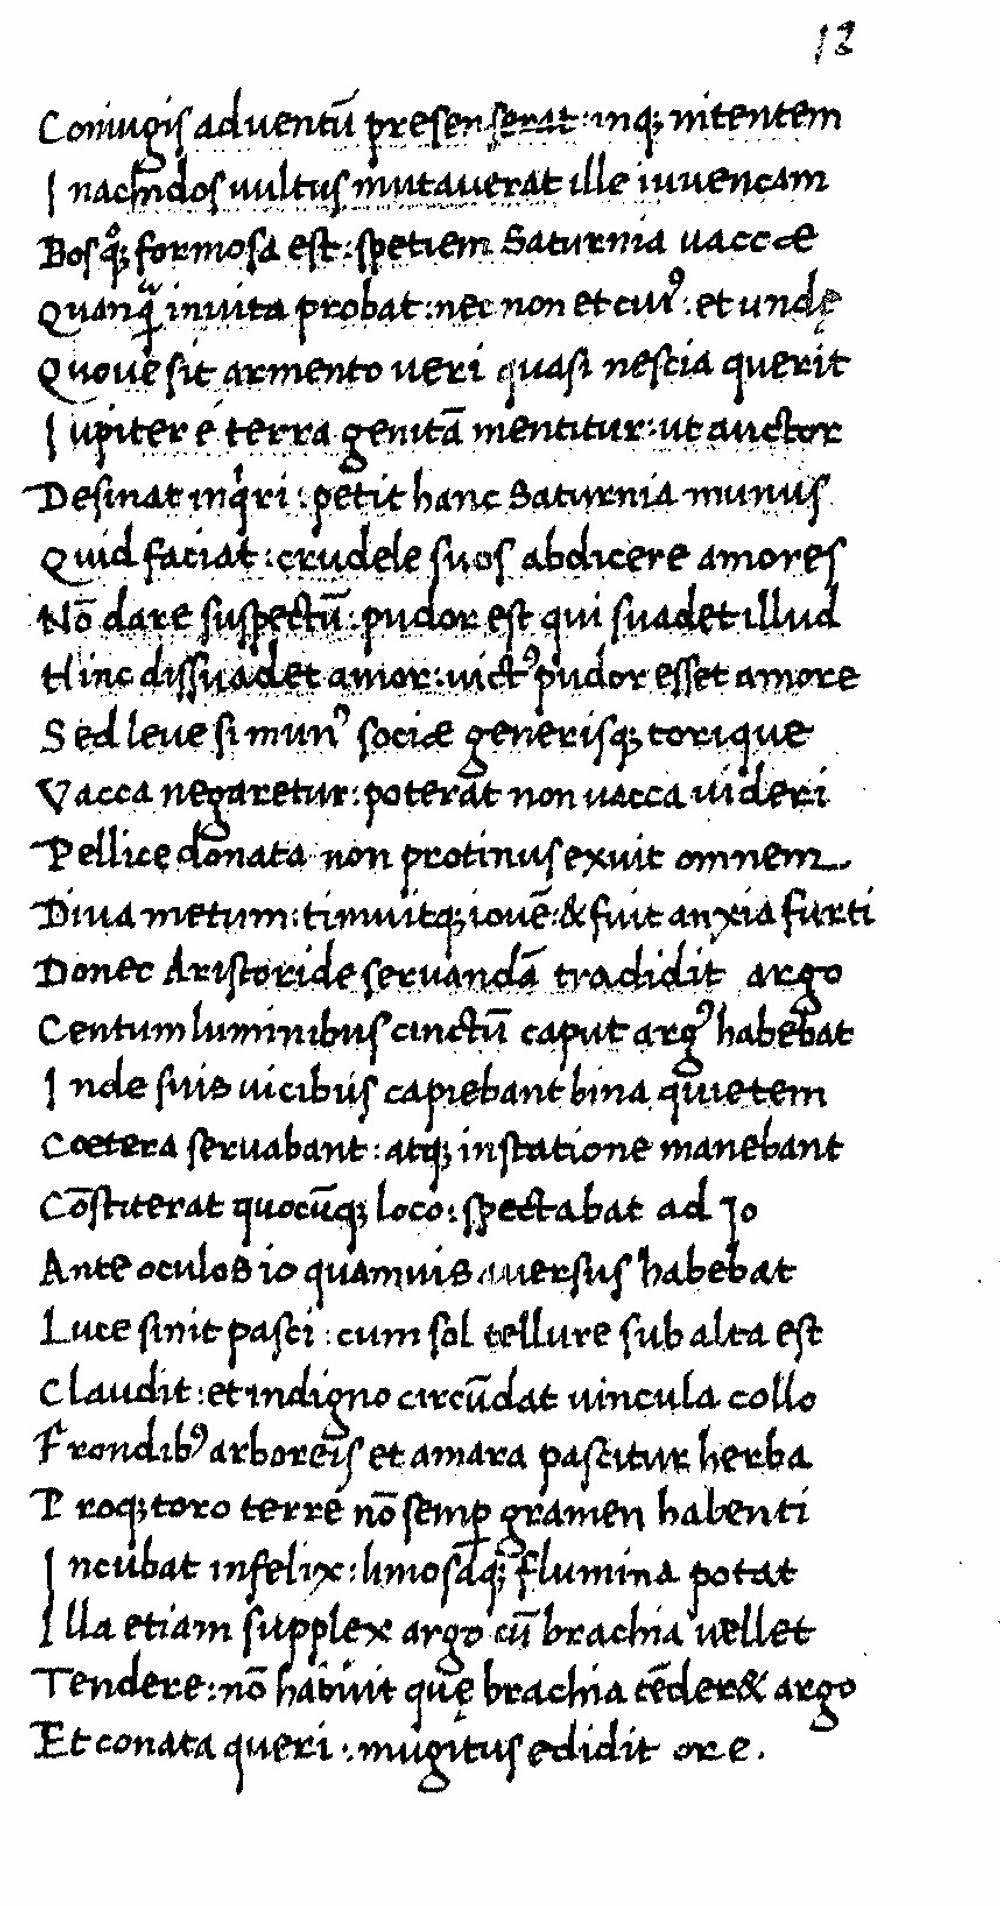 12
Coniugis aduentū presenserat: inqꝫ nitentem
Inachidos uultus mutauerat ille iuuencam
Bosqꝫ formosa est: spetiem Saturnia uaccæ
Quanqᷓ inuita probat: nec non et cuiꝰ: et undę
Quoue sit armento ueri quasi nescia querit
Iupiter é terra genitā mentitur: ut auctor
Desinat inqͥri: petit hanc Saturnia munus
Quid faciat: crudele suos abdicere amores
Nō dare suspectū: pudor est qui suadet illud
Hinc dissuadet amor: uictꝰ pudor esset amore
Sed leue si munꝰ sociæ generisqꝫ torique
Vacca negaretur: poterat non uacca uideri
Pellice donata non protinus exuit omnem
Diua metum: timuitqꝫ iouē: & fuit anxia furti
Donec Aristoride seruandā tradidit argo
Centum luminibus cinctū caput argꝰ habebat
Inde suis uicibus capiebant bina quietem
Cœtera seruabant: atqꝫ in statione manebant
Cōstiterat quocūqꝫ loco: spectabat ad Io
Ante oculos io quamuis auersus habebat
Luce sinit pasci: cum sol tellure sub alta est
Claudit: et indigno circūdat uincula collo
Frondibꝰ arboreis et amara pascitur herba
Proqꝫ toro terre nō semꝑ gramen habenti
Incubat infelix: limosaqꝫ flumina potat
Illa etiam supplex argo cū brachia uellet
Tendere: nō habuit quę brachia tēder& argo
Et conata queri: mugitus edidit ore.